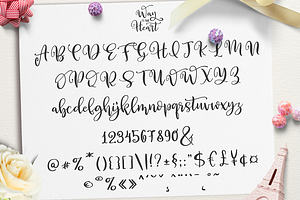 Way
to the
Heart
ABCDEFGHIJKLMN
OPQRSTUVWXYZ
abcdefghijklmnopqrstuvwxyz
1234567890&
@#%*(){}[]\|!?±§:;"$€£¥¢¤